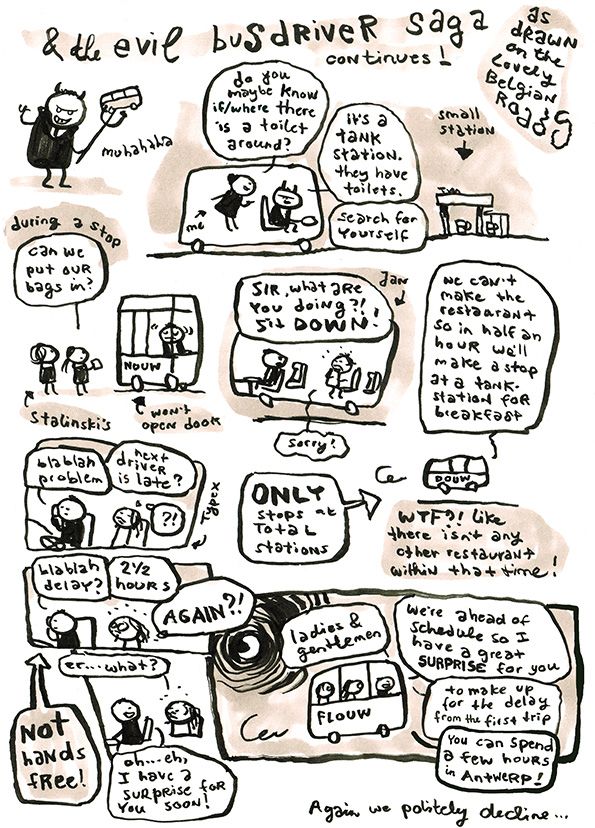 & the evil busdriver saga
continues!
as
drawn
on the
lovely
Belgian
Roads
muhahaha
do you
maybe know
if/where there
is a toilet
around?
it's a
tank
station.
they have
toilets.
search for
yourself
me
small
station
during a stop
can we
put our
bags in?
NOUW
Stalinski's
won't
open door
Sir, what are
you doing?!
Sit DOWN!
Jan
sorry!
we can't
make the
restaurant
so in half an
hour we'll
make a stop
at a tank-
station for
breakfast
DOUW
WTF?! Like
there isn't any
other restaurant
within that time!
blablah
problem
next
driver
is late?
?!
Typex
ONLY
stops at
Total
stations
blablah
delay?
2½
hours
AGAIN?!
NOT
hands
free!
er...what?
oh...eh,
I have a
surprise for
you soon!
ladies &
gentlemen
FLOUW
We're ahead of
schedule so I
have a great
SURPRISE for you
to make up
for the delay
from the first trip
You can spend
a few hours
in Antwerp!
Again we politely decline...